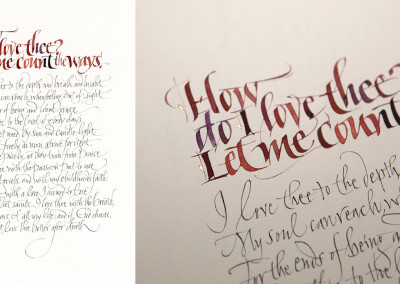 love thee?
me count the ways.
thee to the depth and breadth and height
can reach, when feeling out of sight
of being and ideal grace.
thee to the level of every day's
need, by sun and candle light.
freely, as men strive for right.
purely, as they turn from Praise.
thee with the passion put to use
griefs, and with my childhood's faith.
with a love I seemed to lose
lost saints. I love thee with the breath,
tears of all my life; and if God choose,
love thee better after death.
How
do I love thee?
Let me count
I love thee to the depth
My soul can reach, w
For the ends of being a
thee to the l